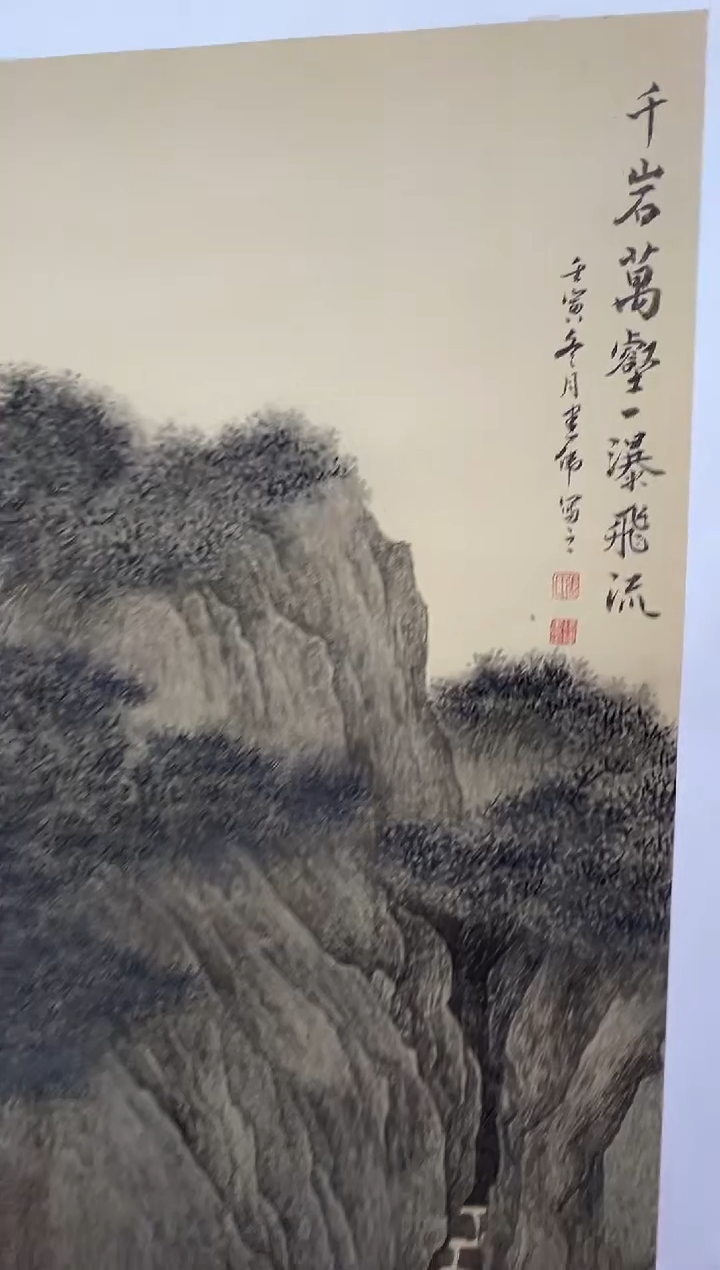 千岩萬壑一瀑飛流
壬寅冬月 伟寫之